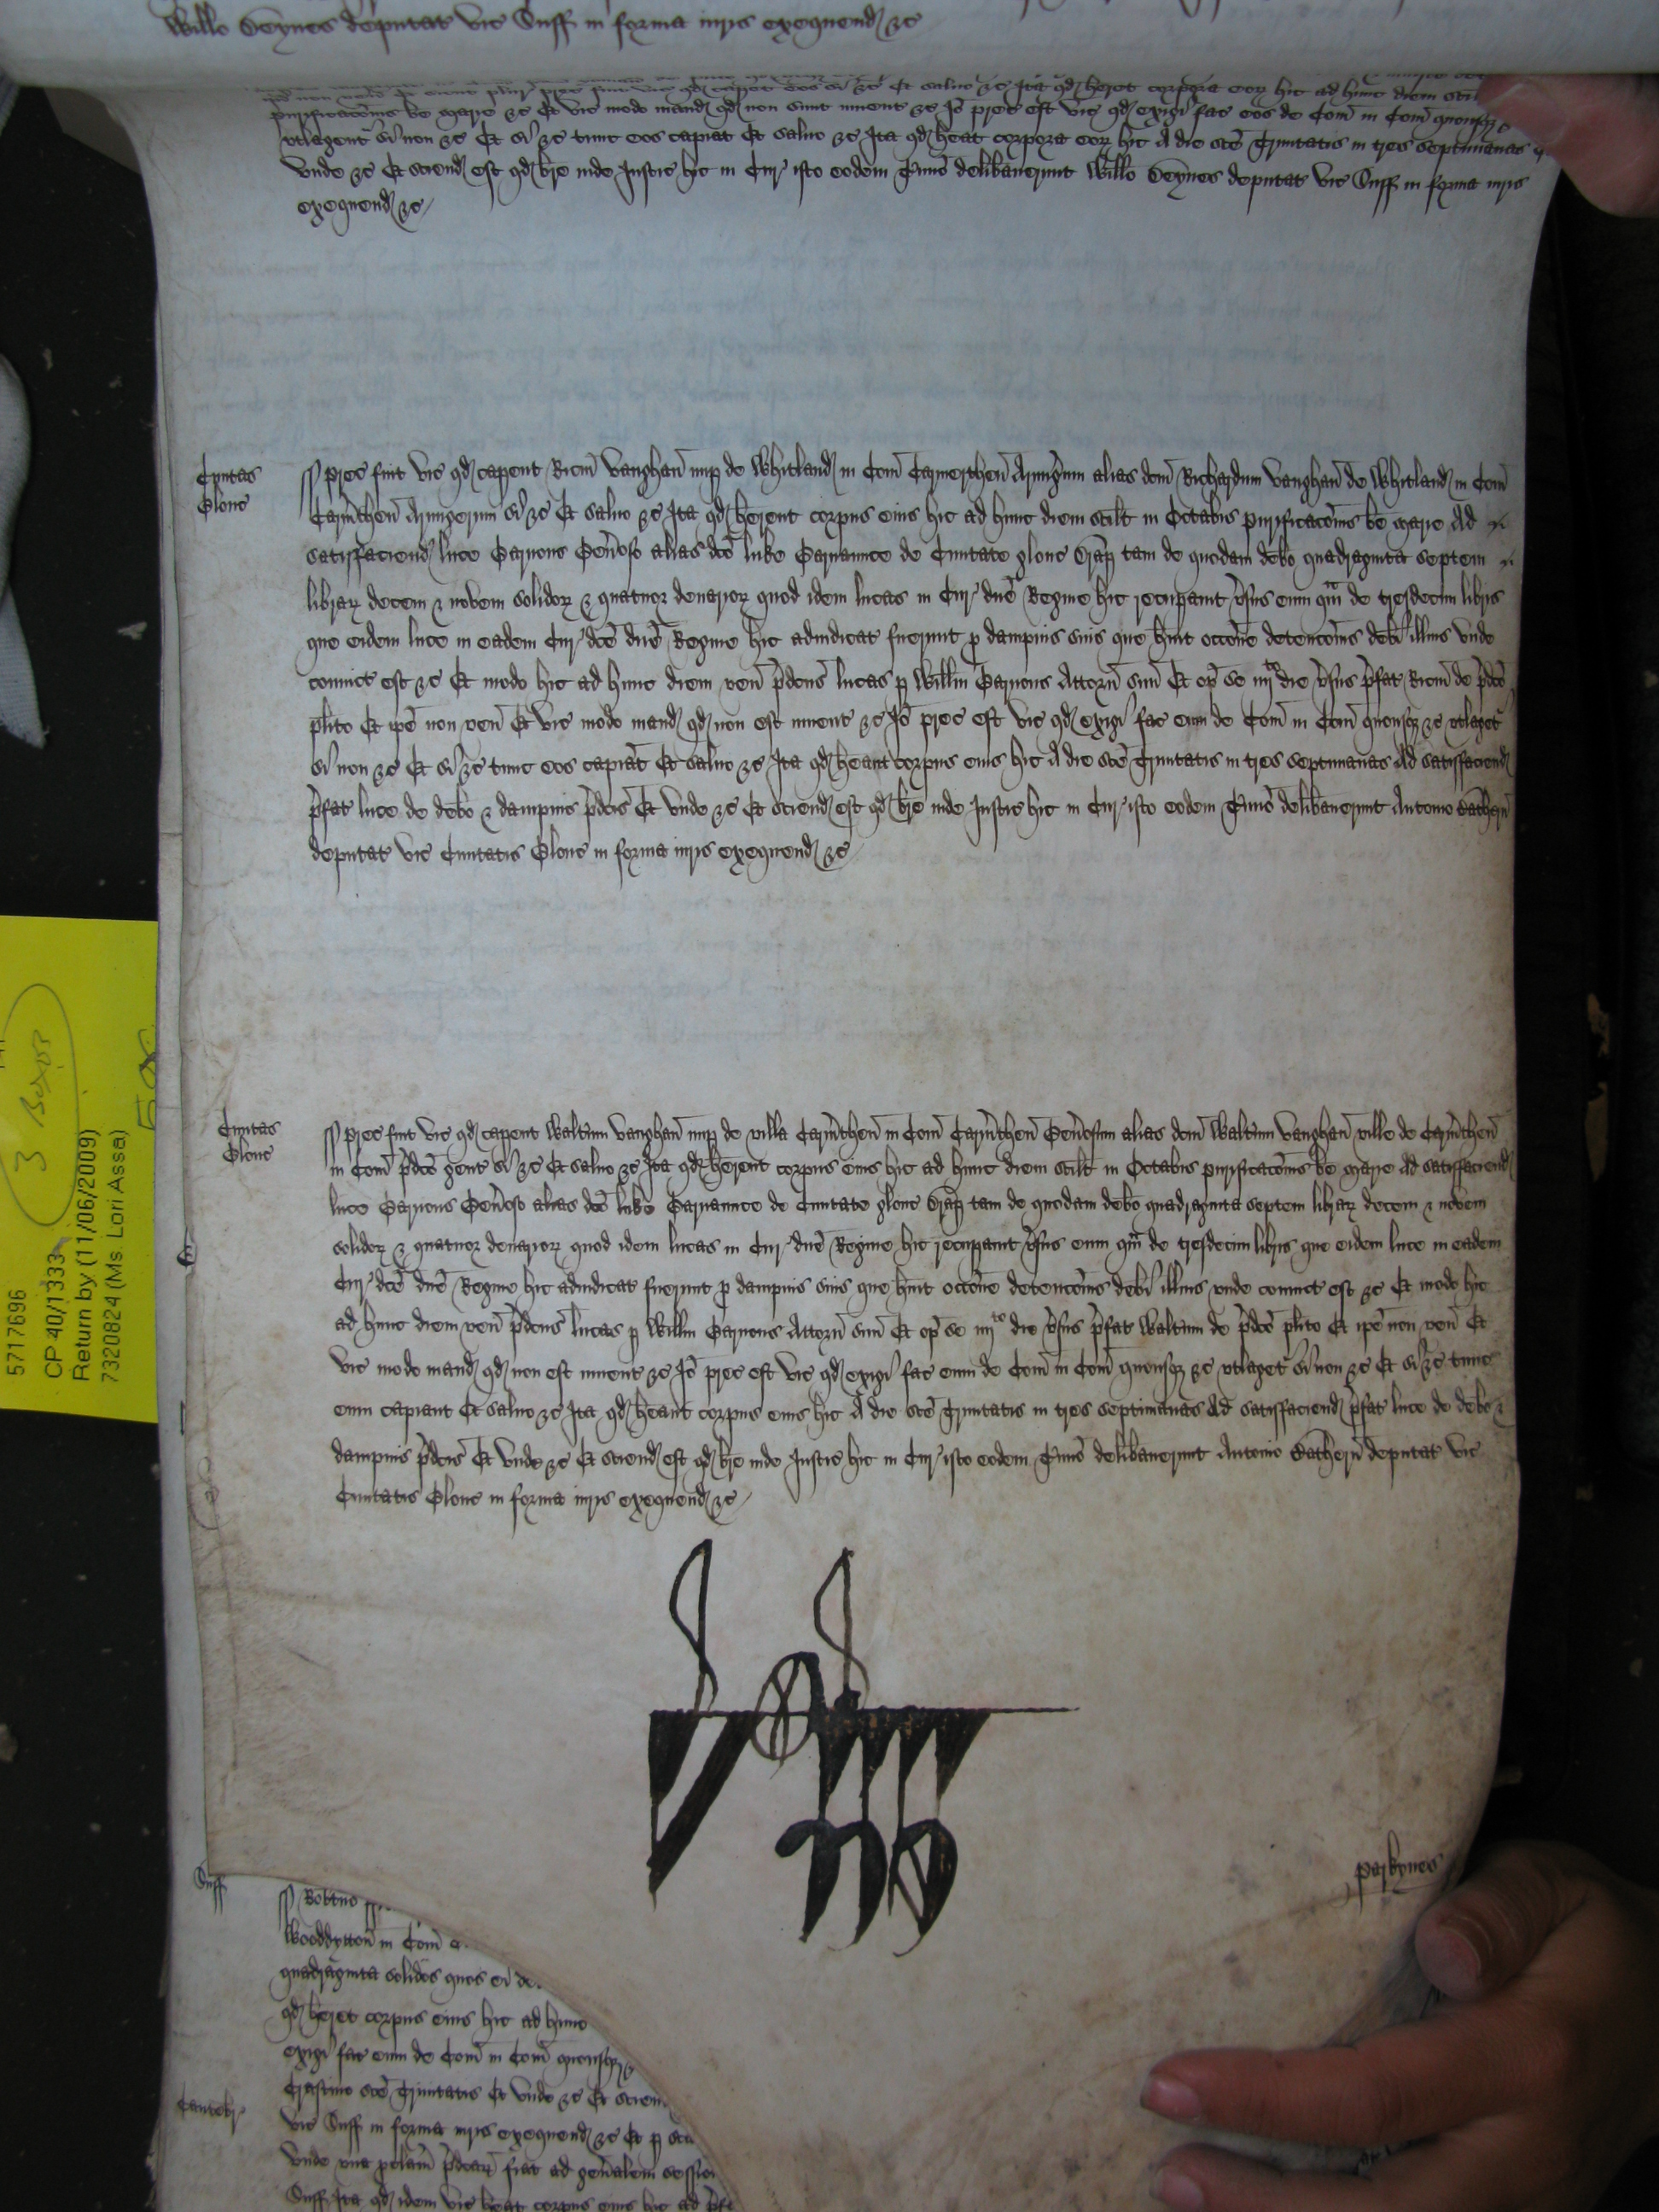 Willo Geynes deputat vic Suff in forma iuris exequend &c
purificacois be marie &c Et vic modo mand qd non sunt invent &c Io prec est vic qd exigi fac eos de Com in Com quousqz &c
utlagent si non &c Et si &c tunc eos capiat Et salvo &c Ita qd heat corpora eor hic A die sce Trinitatis in tres septimanas
unde &c Et sciend est qd bre inde Justic hic in Cur isto eodem Timo delibaverunt Willo Geynes deputat vic Suff in forma iuris
exequend &c
Civitas
Glouc
prec fuit vic qd capent Ricm Vaughan nup de Whitland in Com Carmerthen Armigum alias dcm Richardum Vaughan de Whitland in Com
Carmthen Armigerum si &c Et salvo &c Ita qd herent corpus eius hic ad hunc diem scilt in Octabis purificacois be marie Ad
satisfaciend luce Garnons Genoso alias dco luke Garnaunce de Civitate glouc tam de quodam debo quadraginta septem
librar decem & novem solidor & quatuor denarior quod idem lucas in Cur dne Regine hic recupavit vsus eum qm de tresdecim libris
que eidem luce in eadem Cur dce dne Regine hic adiudicat fuerunt p dampnis suis que huit occone detencois debi illius unde
convict est &c Et modo hic ad hunc diem ven pdcus lucas p Willm Garnons Attorn suu Et op se iiijto die vsus pfat Ricm de pdco
plito Et ipe non ven Et vic modo mand qd non est invent &c Io prec est vic qd exigi fac eum de Com in Com quousqz &c utlaget
si non &c Et si &c tunc eos capiat Et salvo &c Ita qd heant corpus eius hic A die sce Trinitatis in tres septimanas Ad satisfaciend
pfat luce de debo & dampnis pdcis Et unde &c Et sciend est qd bre inde Justic hic in Cur isto eodem Timo delibaverunt Antonio
deputat vic Civitatis Glouc in forma iuris exequend &c
Civitas
Glouc
prec fuit vic qd capent Waltum Vaughan nup de villa Carmthen in Com Carmthen Genosum alias dcm Waltum Vaughan ville de Carmthen
in Com pdco gent si &c Et salvo &c Ita qd herent corpus eius hic ad hunc diem scilt in Octabis purificacois be marie Ad satisfaciend
luce Garnons Genoso alias dco luke Garnaunce de Civitate glouc tam de quodam debo quadraginta septem librar decem & novem
solidor & quatuor denarior quod idem lucas in Cur dne Regine hic recupavit vsus eum qm de tresdecim libris que eidem luce in eadem
Cur dce dne Regine hic adiudicat fuerunt p dampnis suis que huit occone detencois debi illius unde convict est &c Et modo hic
ad hunc diem ven pdcus lucas p Willm Garnons Attorn suu Et op se iiijto die vsus pfat Waltum de pdco plito Et ipe non ven Et
vic modo mand qd non est invent &c Io prec est vic qd exigi fac eum de Com in Com quousqz &c utlaget si non &c Et si &c tunc
eum capiant Et salvo &c Ita qd heant corpus eius hic A die sce Trinitatis in tres septimanas Ad satisfaciend pfat luce de debo &
dampnis pdcis Et unde &c Et sciend est qd bre inde Justic hic in Cur isto eodem Timo delibaverunt Antonio deputat vic
Civitatis Glouc in forma iuris exequend &c
parkyns
Suff
Wooddytton in Com
quadraginta solidos quos ei de
qd heret corpus eius hic ad hunc
exigi fac eum de Com in Com quousqz
Crastino sce Trinitatis Et unde &c Et scien
Cantebr
vic Suff in forma iuris exequend &c Et p
unde una polam pdcar fiat ad genalem session
Suff Ita qd idem vic heat corpus eius hic ad
3 Boxes
5717696
CP 40/1333
Return by (11/06/2009)
7320824 (Ms. Lori Assa)